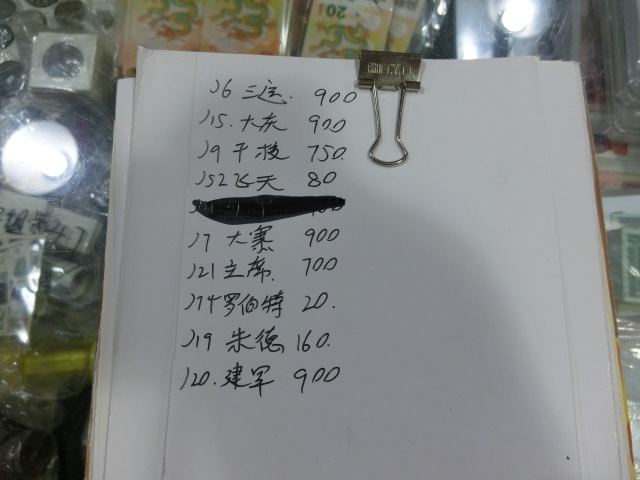 J6 三运. 900
J15. 大庆 900
J9 干校 750.
J52 飞天 80
J7 大寨 900
J21 主席. 700
J74 罗伯特 20.
J19 朱德 160.
J20. 建军 900